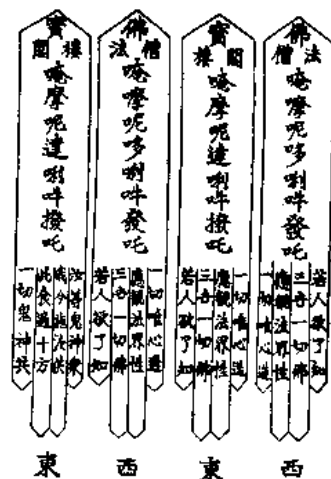 佛
法僧
唵嚤呢哆唎吽發吒
若人欲了知
三世一切佛
應觀法界性
一切唯心造
西
寶
閣樓
唵摩呢達唎吽撥吒
一切唯心造
應觀法界性
三世一切佛
若人欲了知
東
佛
僧法
唵嚤呢哆唎吽發吒
一切唯心造
應觀法界性
三世一切佛
若人欲了知
西
寶
樓閣
唵摩呢達唎吽撥吒
汝等鬼神衆
我今施汝供
此食遍十方
一切鬼神共
東